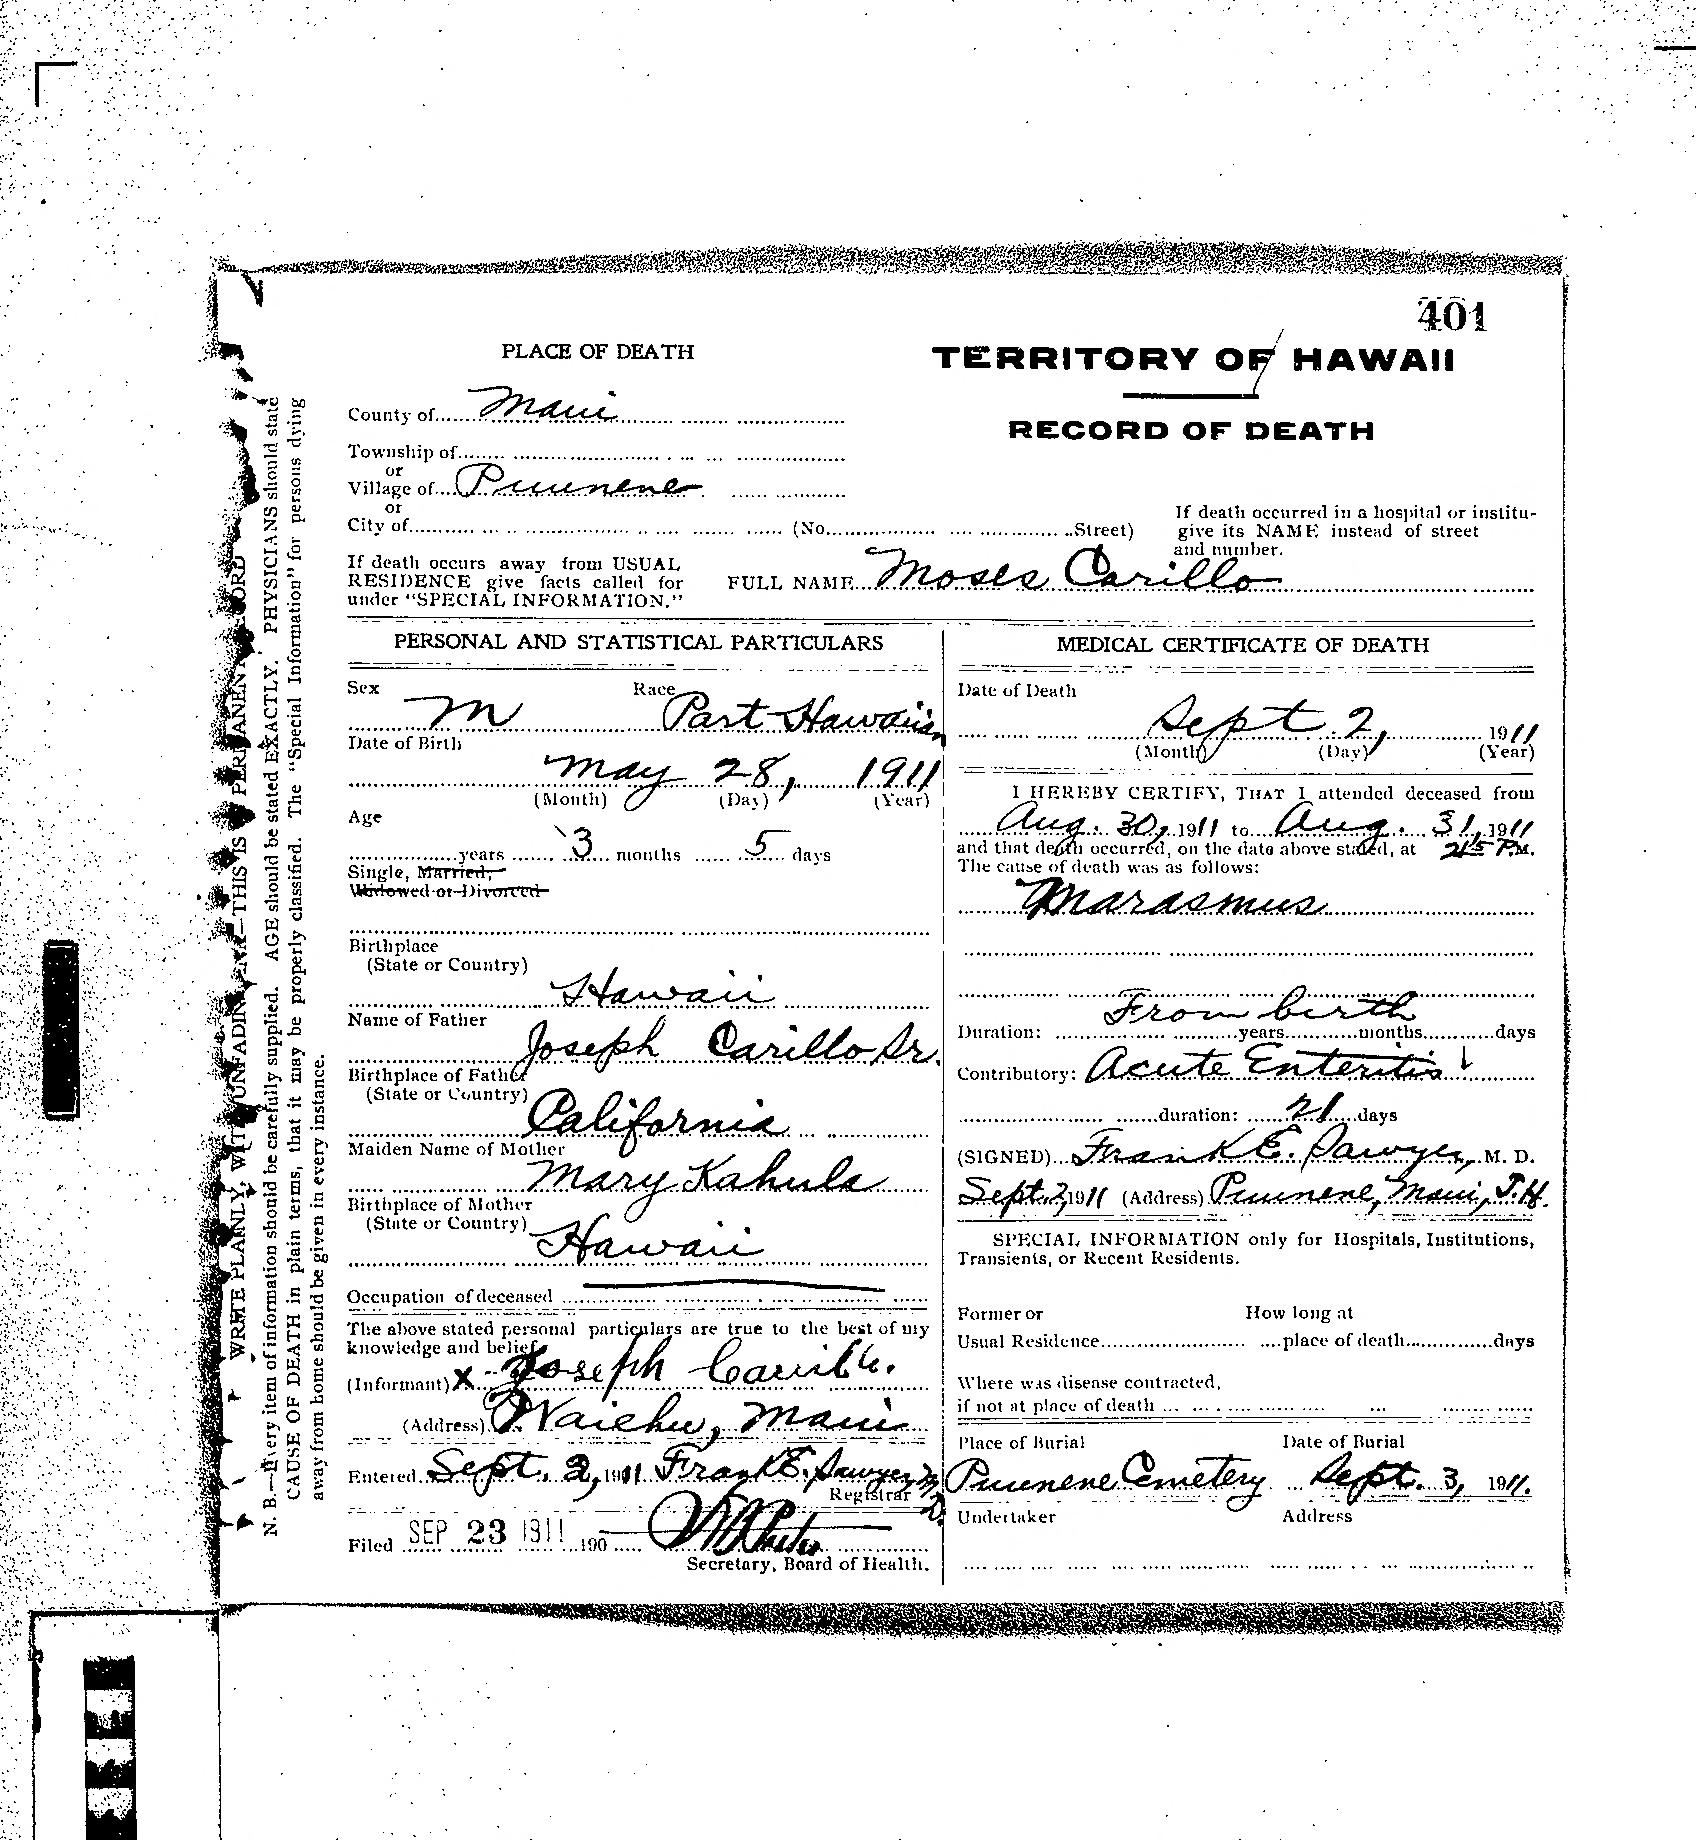 401
PLACE OF DEATH
TERRITORY OF HAWAII
RECORD OF DEATH
County of Maui
Township of
or
Village of Puunene
or
City of (No. Street)
If death occurred in a hospital or institu-
give its NAME instead of street
and number.
If death occurs away from USUAL
RESIDENCE give facts called for
under "SPECIAL INFORMATION."
FULL NAME Moses Carillo
PERSONAL AND STATISTICAL PARTICULARS
Sex Race
M Part Hawaiian
Date of Birth
May 28, 1911
(Month) (Day) (Year)
Age
years 3 months 5 days
Single, Married,
Widowed or Divorced
Birthplace
(State or Country)
Hawaii
Name of Father
Joseph Carillo Sr.
Birthplace of Father
(State or Country)
California
Maiden Name of Mother
Mary Kahula
Birthplace of Mother
(State or Country)
Hawaii
Occupation of deceased
The above stated personal particulars are true to the best of my
knowledge and belief
(Informant) X Joseph
(Address) Waiehu, Maui
Entered Sept. 2, 1911 Frank E. Sawyer M.D.
Registrar
Filed SEP 23 1911 190
Secretary, Board of Health.
MEDICAL CERTIFICATE OF DEATH
Date of Death
Sept. 2, 1911
(Month) (Day) (Year)
I HEREBY CERTIFY, THAT I attended deceased from
Aug. 30, 1911 to Aug. 31, 1911
and that death occurred, on the date above stated, at 215 P.M.
The cause of death was as follows:
Marasmus
From birth
Duration: years months days
Contributory: Acute Enteritis
duration: 21 days
(SIGNED) Frank E. Sawyer, M. D.
Sept. 2, 1911 (Address) Puunene, Maui, T.H.
SPECIAL INFORMATION only for Hospitals, Institutions,
Transients, or Recent Residents.
Former or How long at
Usual Residence place of death days
Where was disease contracted,
if not at place of death
Place of Burial Date of Burial
Puunene Cemetery Sept. 3, 1911.
Undertaker Address
WRITE PLANLY, WITH UNFADING INK—THIS IS A PERMANENT RECORD
N. B.—Every item of information should be carefully supplied. AGE should be stated EXACTLY. PHYSICIANS should state
CAUSE OF DEATH in plain terms, that it may be properly classified. The "Special Information" for persons dying
away from home should be given in every instance.